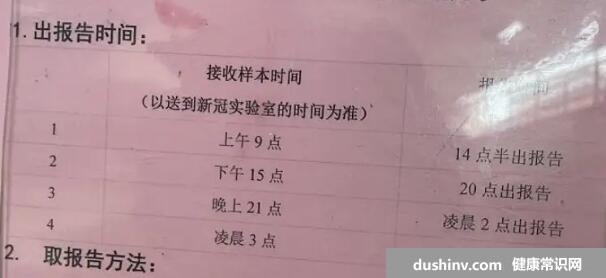 1. 出报告时间：
接收样本时间
（以送到新冠实验室的时间为准）
1 上午 9 点 14 点半出报告
2 下午 15 点 20 点出报告
3 晚上 21 点 凌晨 2 点出报告
4 凌晨 3 点
2. 取报告方法：
dushinv.com 健康常识网